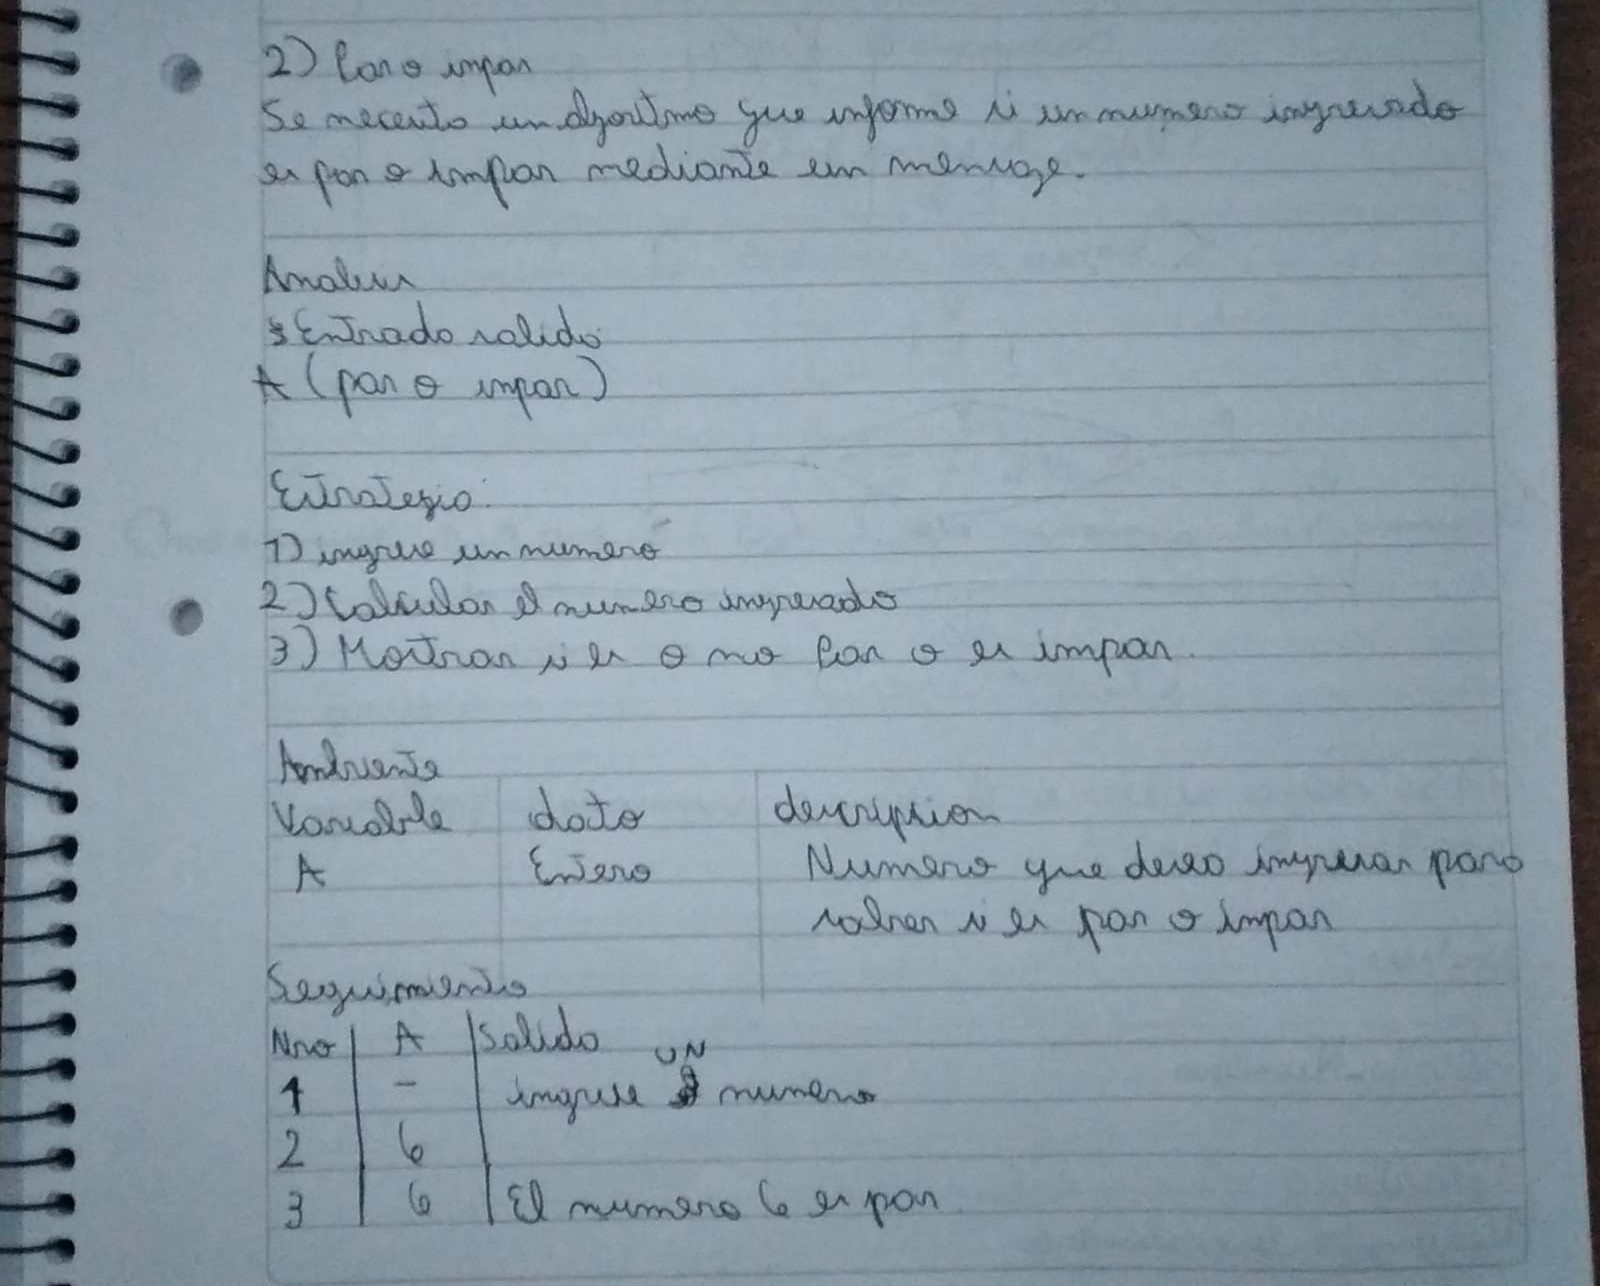 2) Par o impar
Se necesita un algoritmo que informe si un numero ingresado
es par o impar mediante un mensaje.
Analisis
Entrada salida
A (par o impar)
Estrategia:
1) ingrese un numero
2) Calcular el numero ingresado
3) Mostrar si es o no Par o es impar.
Ambiente
Variable dato descripcion
A Entero Numero que deseo ingresar para
saber si es par o impar
Seguimiento
Nro A Salida
1 - ingrese UN numero
2 6
3 6 El numero 6 es par